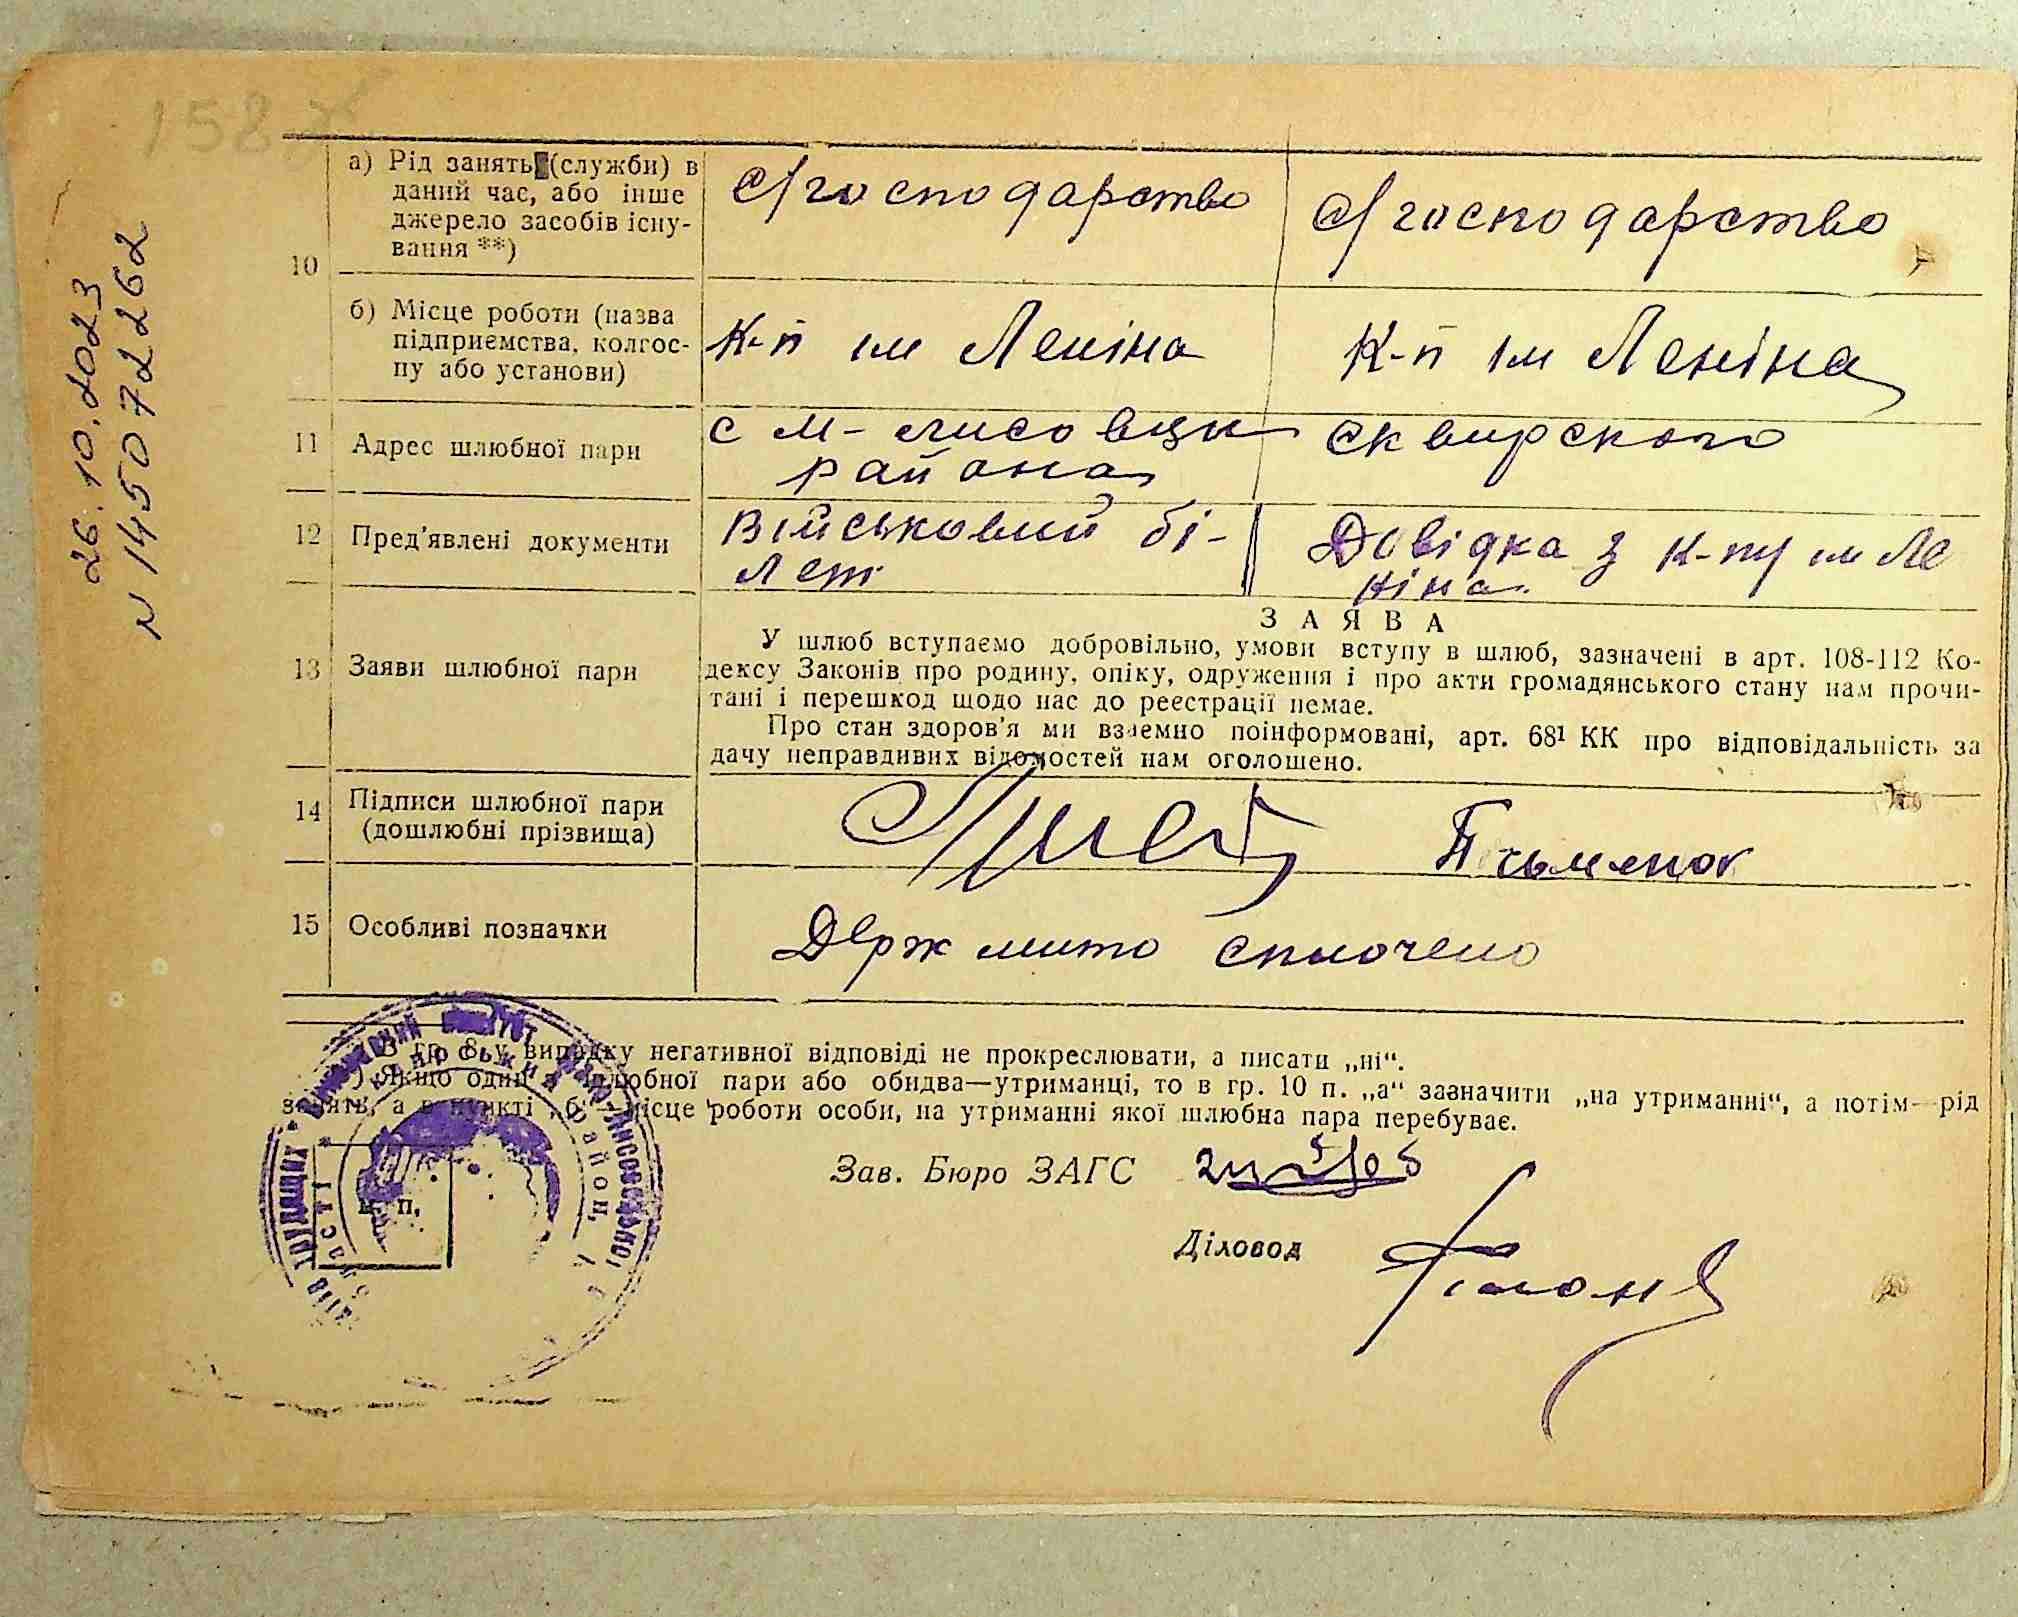 158
26.10.2023
N 145072262
10
а) Рід занять (служби) в
даний час, або інше
джерело засобів існу-
вання **)
С/господарство
С/господарство
б) Місце роботи (назва
підприємства, колгос-
пу або установи)
К-п ім Леніна
К-п ім Леніна
11 Адрес шлюбної пари
с М-Лисовцы Сквирского
района
12 Пред'явлені документи
Військовий бі-
лет
Довідка з к-пу ім Ле
ніна.
13 Заяви шлюбної пари
ЗАЯВА
У шлюб вступаємо добровільно, умови вступу в шлюб, зазначені в арт. 108-112 Ко-
дексу Законів про родину, опіку, одруження і про акти громадянського стану нам прочи-
тані і перешкод щодо нас до реєстрації немає.
Про стан здоров'я ми взаємно поінформовані, арт. 68¹ КК про відповідальність за
дачу неправдивих відомостей нам оголошено.
14 Підписи шлюбної пари
(дошлюбні прізвища)
Письменюк
15 Особливі позначки
Держ мито сплочено
В гр. 8 у випадку негативної відповіді не прокреслювати, а писати „ні“.
) Якщо один з шлюбної пари або обидва—утриманці, то в гр. 10 п. „а“ зазначити „на утриманні“, а потім—рід
занять, а в пункті „б“ місце роботи особи, на утриманні якої шлюбна пара перебуває.
Зав. Бюро ЗАГС
Діловод
м. п.